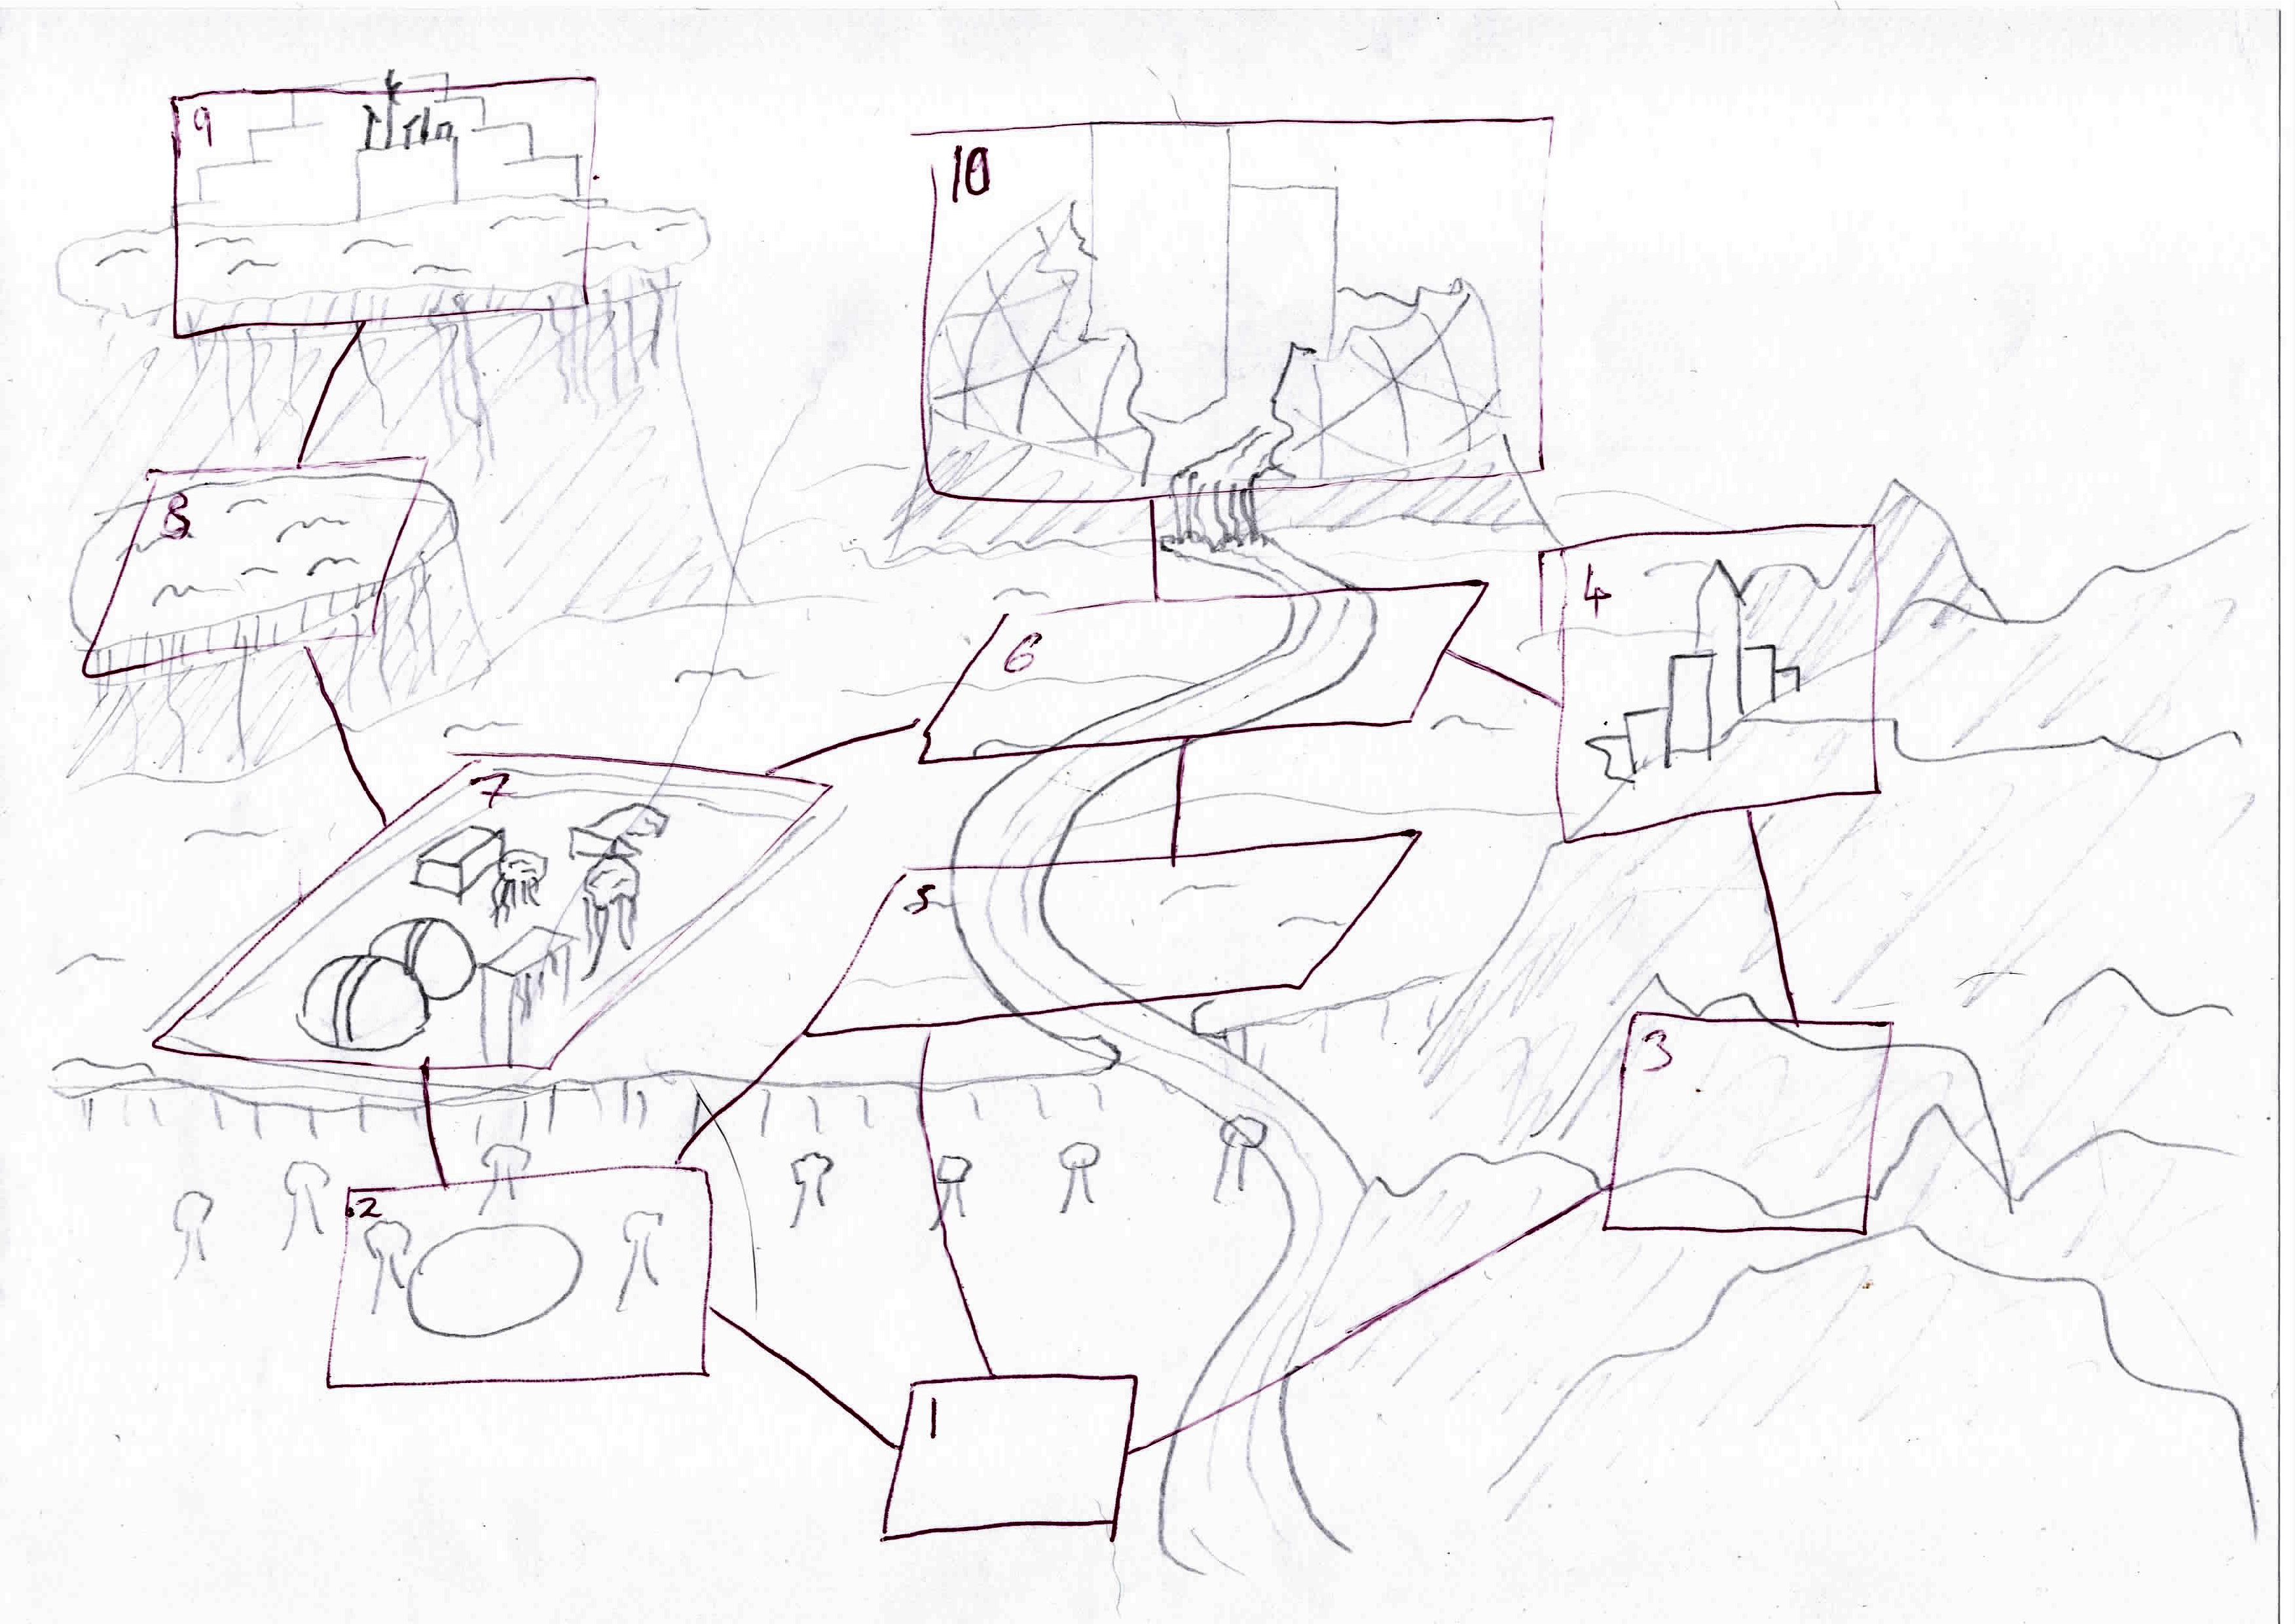 9
10
8
4
6
7
5
3
2
1